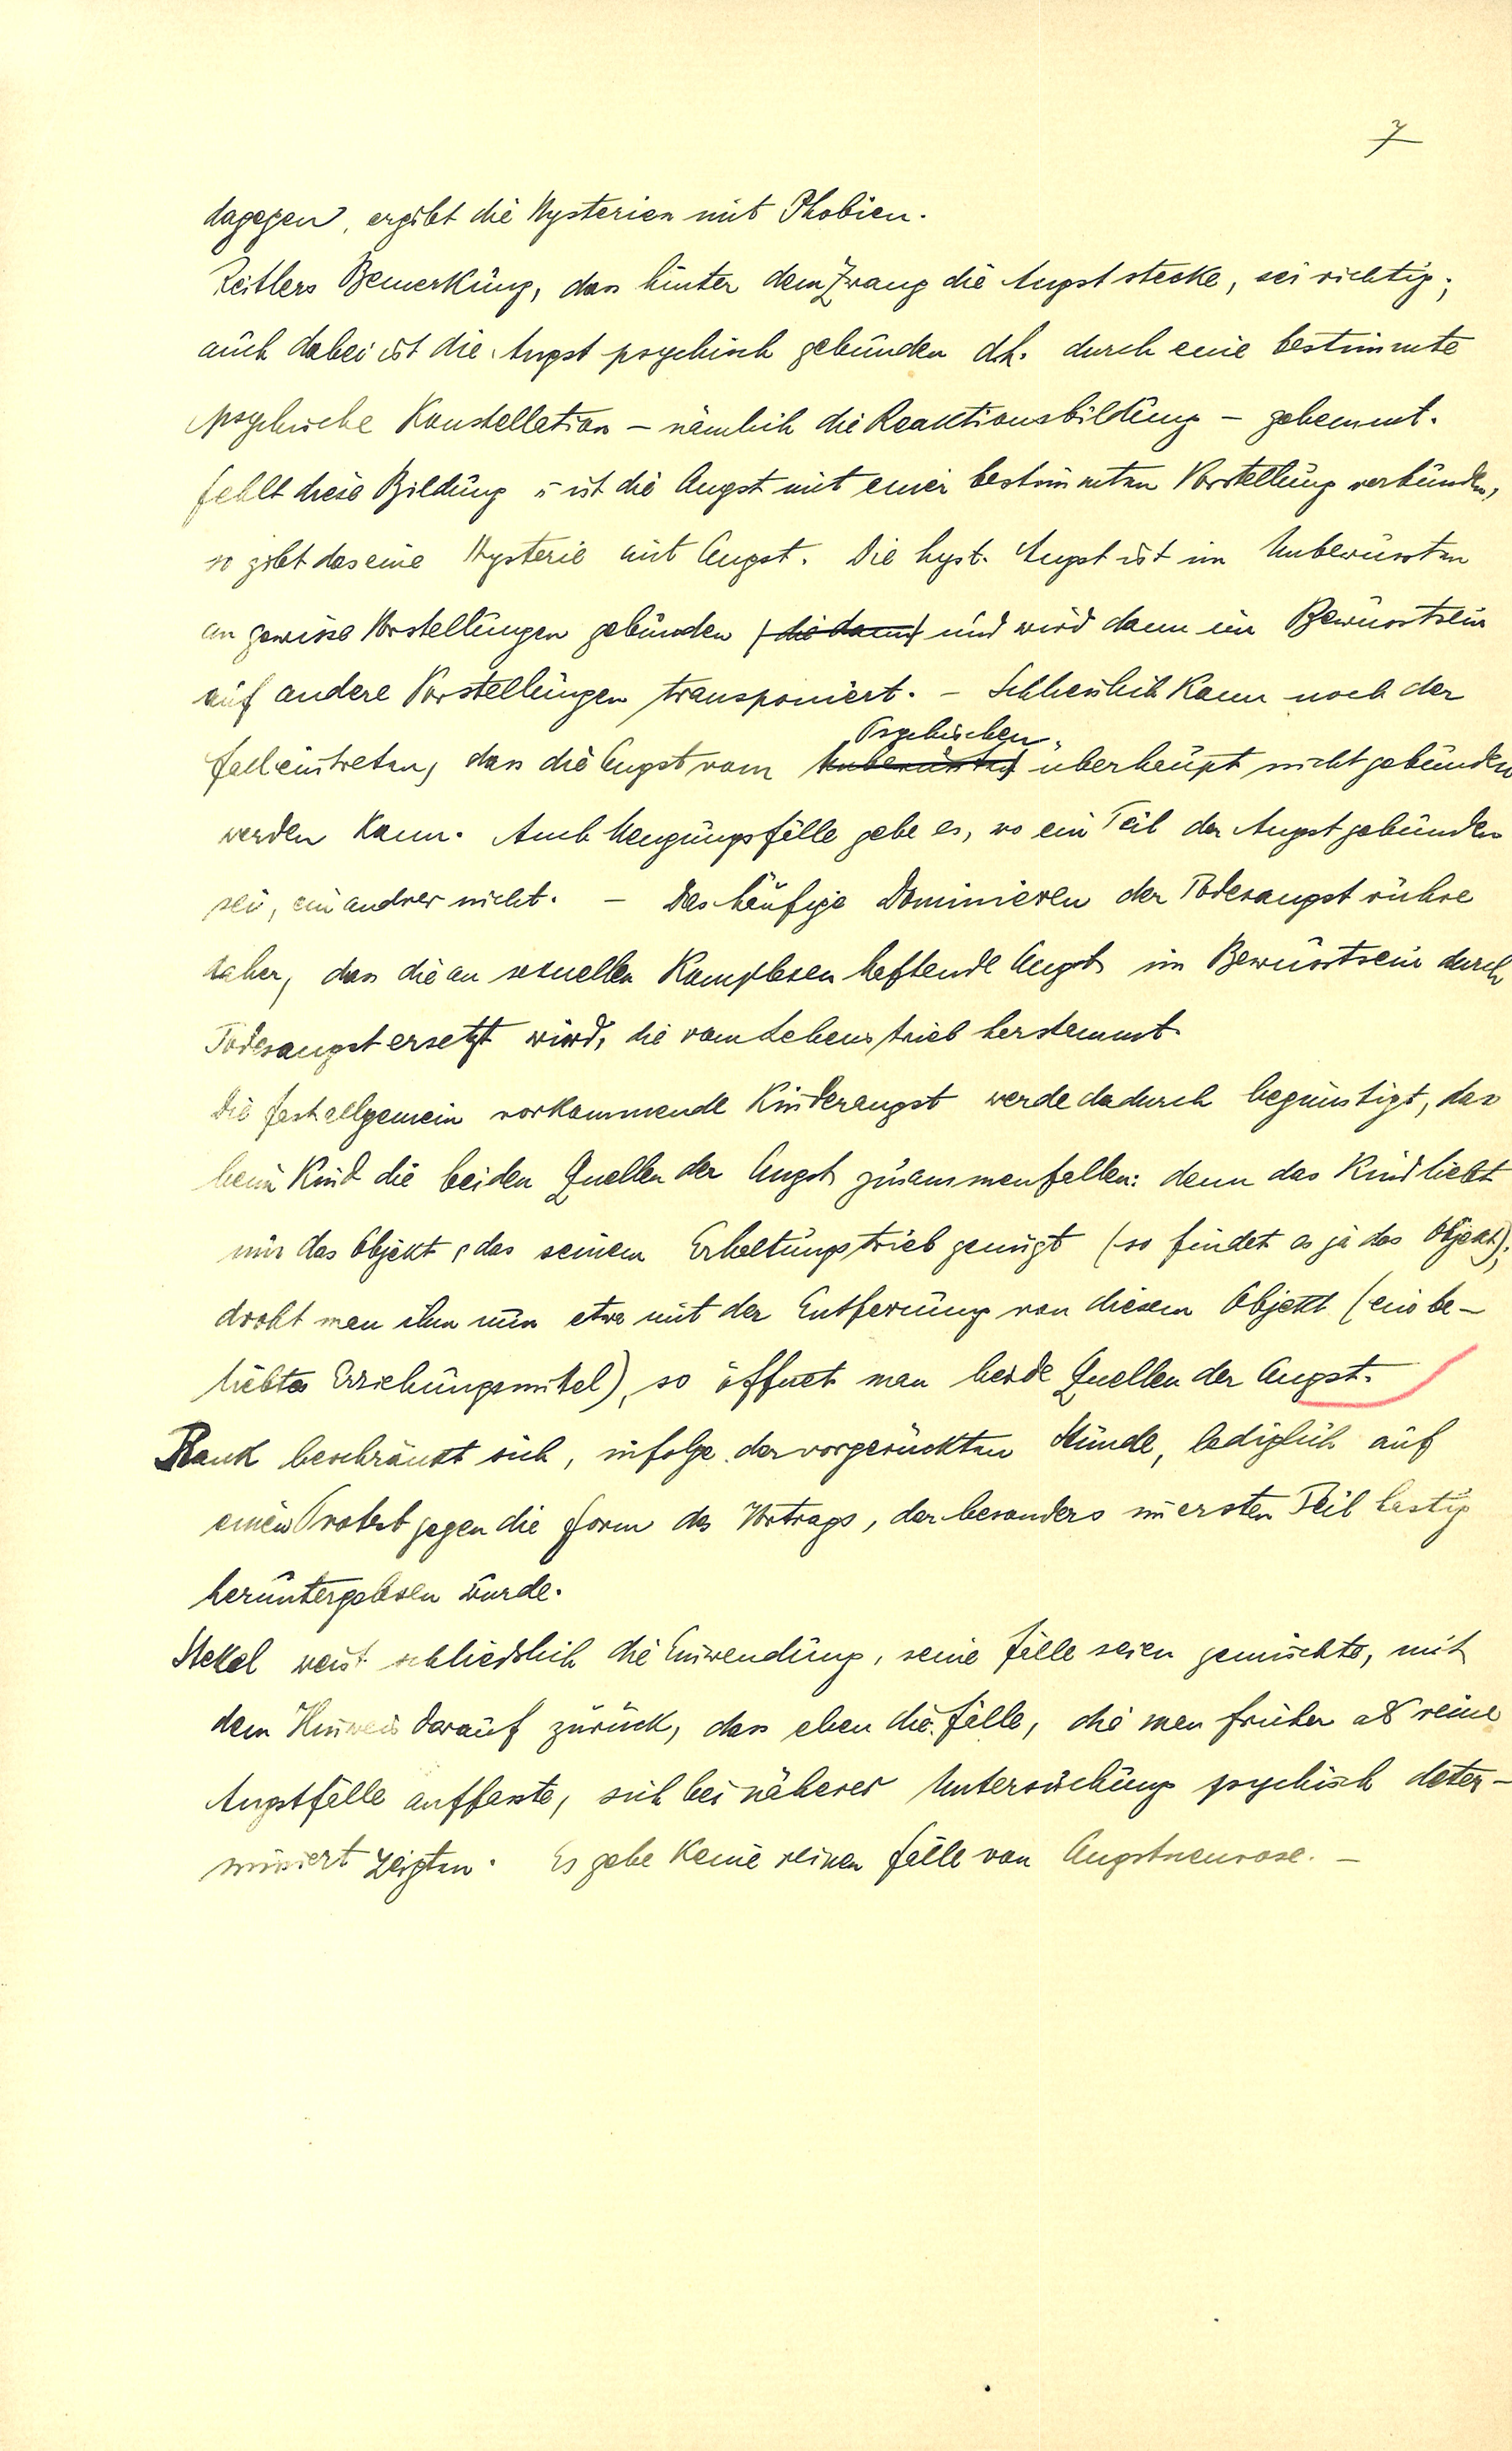 7
dagegen, ergibt die Hysterien mit Phobien.
Reitlers Bemerkung, dass hinter dem Zwang die Angst stecke, sei richtig;
auch dabei ist die Angst psychisch gebunden d.h. durch eine bestimmte
psychische Konstellation – nämlich die Reaktionsbildung – gehemmt.
fehlt diese Bildung u ist die Angst mit einer bestimmten Vorstellung verbunden,
so gibt das eine Hysterie mit Angst. Die hyst. Angst ist im Unbewussten
an gewisse Vorstellungen gebunden (die dann) und wird dann im Bewusstsein
auf andere Vorstellungen transponiert. – Schliesslich kann noch der
Psychischen
fall eintreten, dass die Angst vom Unbewussten überhaupt nicht gebunden
werden kann. Auch Mengungsfälle gebe es, wo ein Teil der Angst gebunden
sei, ein andrer nicht. – Das häufige Dominieren der Todesangst rühre
daher, dass die an sexuellen Komplexen haftende Angst im Bewusstsein durch
Todesangst ersetzt wird, die vom Lebenstrieb herstammt.
Die fast allgemein vorkommende Kinderangst werde dadurch begünstigt, dass
beim Kind die beiden Quellen der Angst zusammenfallen: denn das Kind liebt
nur das Objekt, das seinem Erhaltungstrieb genügt (so findet es ja das Objekt);
droht man ihm nun etwa mit der Entfernung von diesem Objekt (ein be-
liebtes Erziehungsmittel), so öffnet man beide Quellen der Angst.
Rank beschränkt sich, infolge der vorgerückten Stunde, lediglich auf
einen Protest gegen die form des Vortrags, der besonders im ersten Teil hastig
heruntergelesen wurde.
Stekel weist schliesslich die Einwendung, seine fälle seien gemischte, mit
dem Hinweis darauf zurück, dass eben die fälle, die man früher als reine
Angstfälle auffasste, sich bei näherer Untersuchung psychisch deter-
miniert zeigten. Es gebe keine reinen fälle von Angstneurose. –